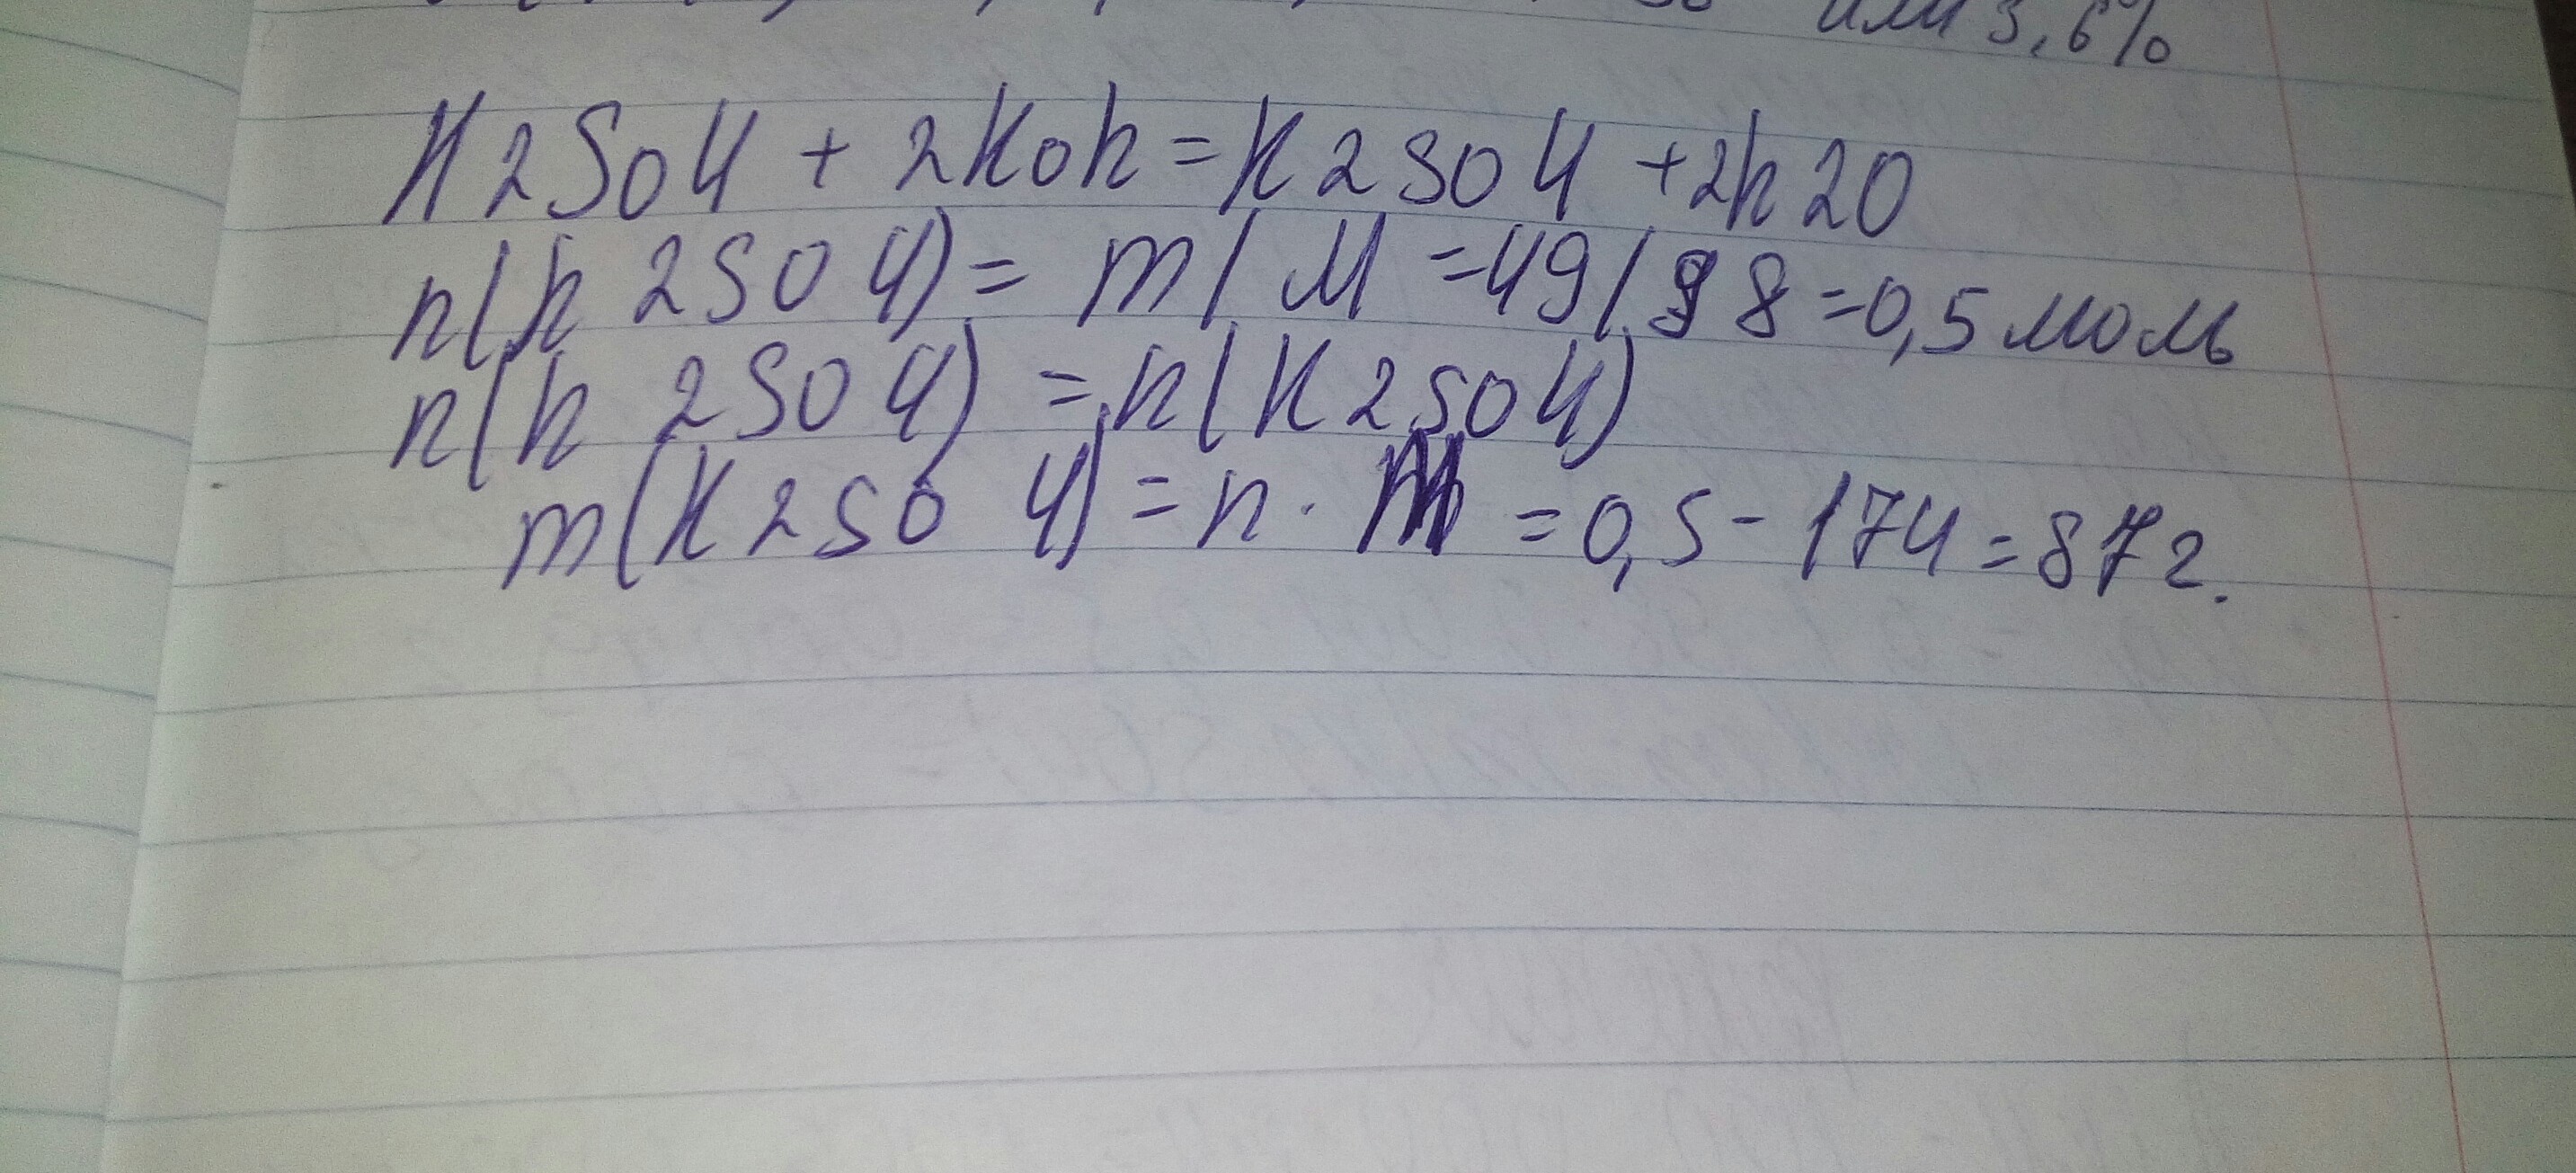 или 3,6%
K2SO4 + 2KOh = K2SO4 + 2h2O
n(h2SO4) = m/M = 49/98 = 0,5 моль
n(h2SO4) = n(K2SO4)
m(K2SO4) = n · M = 0,5 - 174 = 87г.